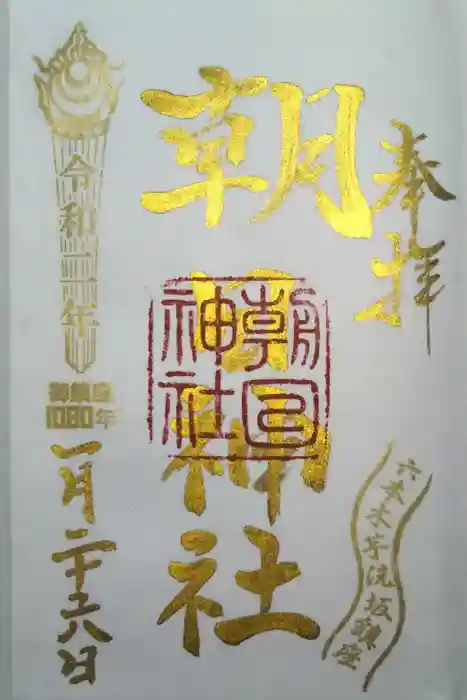 奉拝
六本木芋洗坂鎮座
朝日神社
朝日
神社
令和二年
御鎮座
1080年
一月二十六日